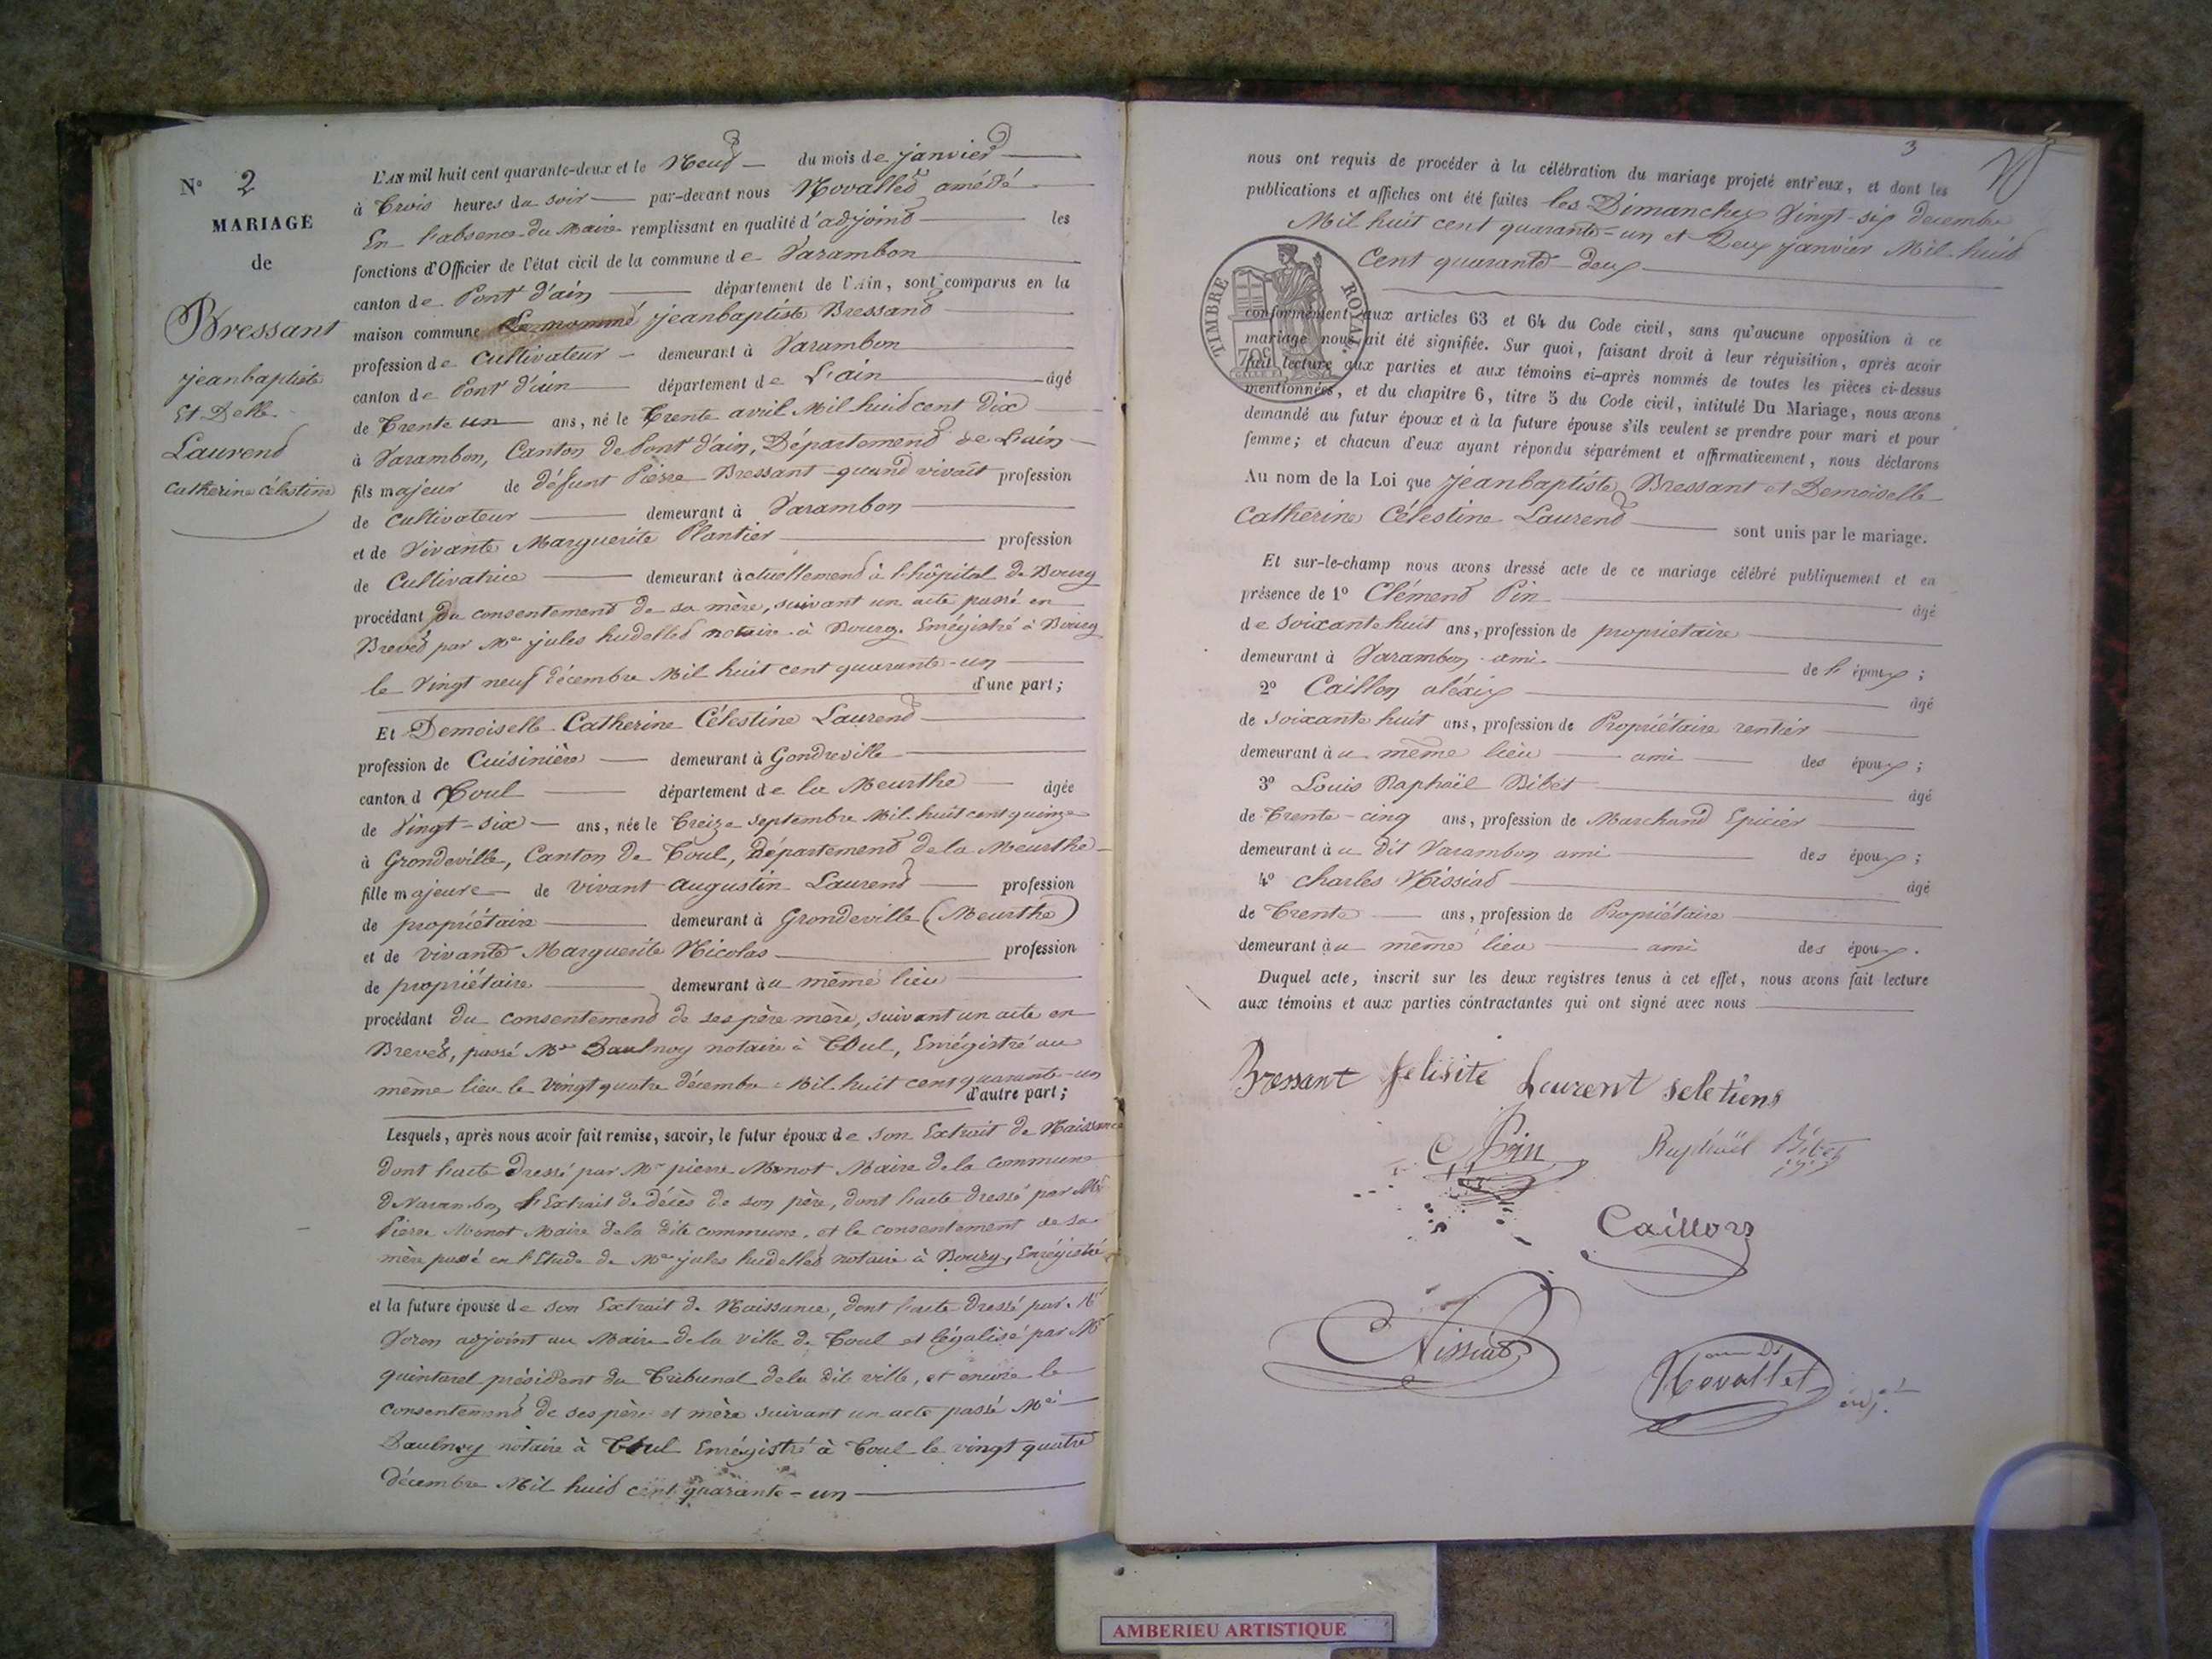 N° 2
MARIAGE
de
Bressant
jeanbaptiste
Et Delle
Laurend
Catherine Célestine
L'AN mil huit cent quarante-deux et le Neuf du mois de janvier
à Trois heures du soir par-devant nous Novallet amédé
En l'absence du Maire remplissant en qualité d'adjoint les
fonctions d'Officier de l'état civil de la commune de Varambon
canton de Pont d'ain département de l'Ain, sont comparus en la
maison commune Le nommé jeanbaptiste Bressand
profession de Cultivateur demeurant à Varambon
canton de Pont d'ain département de L'ain âgé
de Trente un ans, né le Trente avril Mil huit cent Dix
à Varambon, Canton de Pont d'ain, Département de L'ain
fils majeur de défunt Pierre Bressant quand vivait profession
de Cultivateur demeurant à Varambon
et de Vivante Marguerite Plantier profession
de Cultivatrice demeurant actuellement à l'hôpital de Bourg
procédant du consentement de sa mère, suivant un acte passé en
Brevet par Me jules hudellet notaire à Bourg. Enrégistré à Bourg
le Vingt neuf décembre Mil huit cent quarante-un
d'une part;
Et Demoiselle Catherine Célestine Laurend
profession de Cuisinière demeurant à Gondreville
canton d Toul département de la Meurthe âgée
de Vingt-six ans, née le Treize septembre Mil huit cent quinze
à Grondeville, Canton de Toul, département de la Meurthe
fille majeure de vivant augustin Laurend profession
de propriétaire demeurant à Grondeville (Meurthe)
et de vivante Marguerite Nicolas profession
de propriétaire demeurant au même lieu
procédant du consentement de ses père mère, suivant un acte en
Brevet, passé Me Daulnoy notaire à Toul, Enrégistré au
même lieu le vingt quatre décembre Mil huit cent quarante-un
d'autre part;
Lesquels, après nous avoir fait remise, savoir, le futur époux de son Extrait de Naissance
dont l'acte dressé par Mr pierre Monot Maire de la Commune
de Varambon, l'Extrait de décès de son père, dont l'acte dressé par Mr
Pierre Monot Maire de la dite commune, et le consentement de sa
mère passé en l'Etude de Me jules hudellet notaire à Bourg, Enrégistré
et la future épouse de son Extrait de Naissance, dont l'acte dressé par Mr
adjoint au Maire de la ville de Toul et légalisé par Mr
quintard président du Tribunal de la dite ville, et encore le
consentement de ses père et mère suivant un acte passé Me
Daulnoy notaire à Toul Enrégistré à Toul le vingt quatre
décembre Mil huit cent quarante-un
3
nous ont requis de procéder à la célébration du mariage projeté entr'eux, et dont les
publications et affiches ont été faites les Dimanches Vingt-six decembre
Mil huit cent quarante-un et Deux janvier Mil huit
Cent quarante-deux
TIMBRE ROYAL.
70c
conformément aux articles 63 et 64 du Code civil, sans qu'aucune opposition à ce
mariage nous ait été signifiée. Sur quoi, faisant droit à leur réquisition, après avoir
fait lecture aux parties et aux témoins ci-après nommés de toutes les pièces ci-dessus
mentionnées, et du chapitre 6, titre 5 du Code civil, intitulé Du Mariage, nous avons
demandé au futur époux et à la future épouse s'ils veulent se prendre pour mari et pour
femme; et chacun d'eux ayant répondu séparément et affirmativement, nous déclarons
Au nom de la Loi que jéanbaptiste Bressant et Demoiselle
Catherine Célestine Laurend sont unis par le mariage.
Et sur-le-champ nous avons dressé acte de ce mariage célébré publiquement et en
présence de 1° Clément Pin âgé
de soixante huit ans, profession de propriétaire
demeurant à Varambon ami de l' époux;
2° Caillon aléxix âgé
de soixante huit ans, profession de Propriétaire rentier
demeurant à u même lieu ami des époux;
3° Louis Raphaël Bibet âgé
de Trente-cinq ans, profession de Marchand Epicier
demeurant à u dit Varambon ami des époux;
4° Charles Nissiat âgé
de Trente ans, profession de Propriétaire
demeurant à u même lieu ami des époux.
Duquel acte, inscrit sur les deux registres tenus à cet effet, nous avons fait lecture
aux témoins et aux parties contractantes qui ont signé avec nous
Bressant felisite Laurent seletiens
C Pin Raphaël Bibet
Caillon
C Nissiat
Novallet adjt
AMBERIEU ARTISTIQUE